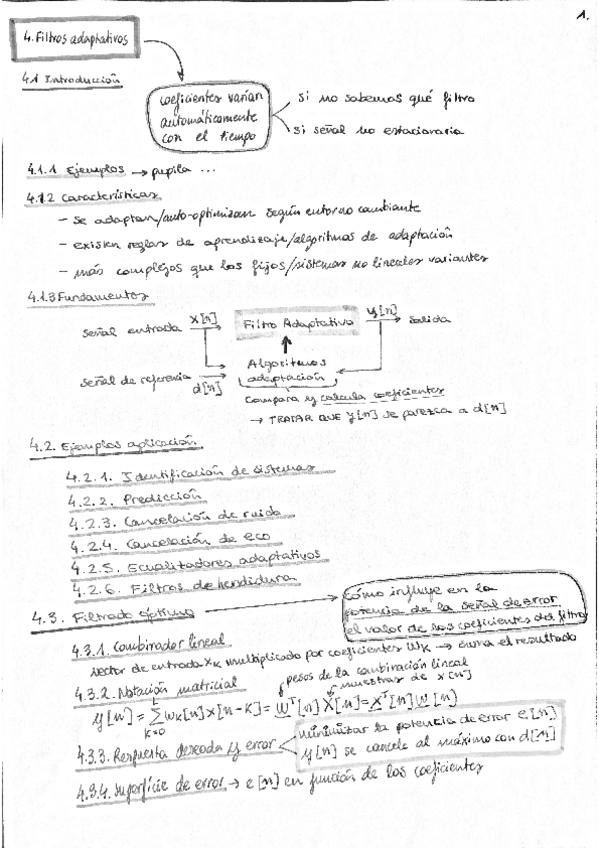 1.
4. Filtros adaptativos
4.1 Introducción
coeficientes varían
automáticamente
con el tiempo
si no sabemos qué filtro
si señal no estacionaria
4.1.1 Ejemplos → pupila ...
4.1.2 Características
- se adaptan/auto-optimizan según entorno cambiante
- existen reglas de aprendizaje/algoritmos de adaptación
- más complejos que los fijos/sistemas no lineales variantes
4.1.3 Fundamentos
señal entrada x[n] → Filtro Adaptativo y[n] → salida
señal de referencia d[n] → Algoritmos
adaptación
compara y calcula coeficientes
→ TRATAR QUE y[n] se parezca a d[n]
4.2. Ejemplos aplicación
4.2.1. Identificación de sistemas
4.2.2. Predicción
4.2.3. Cancelación de ruido
4.2.4. Cancelación de eco
4.2.5. Ecualizadores adaptativos
4.2.6. Filtros de hendidura
4.3. Filtrado óptimo →
cómo influye en la
potencia de la señal de error
el valor de los coeficientes del filtro
4.3.1. Combinador lineal
vector de entrada Xk multiplicado por coeficientes Wk → suma el resultado
4.3.2. Notación matricial
pesos de la combinación lineal
muestras de x[n]
y[n] = Σ_{k=0}^{L} wk[n]x[n-k] = W^T[n] X[n] = X^T[n] W[n]
4.3.3. Respuesta deseada y error
minimizar la potencia de error e[n]
y[n] se cancele al máximo con d[n]
4.3.4. Superficie de error → e[n] en función de los coeficientes